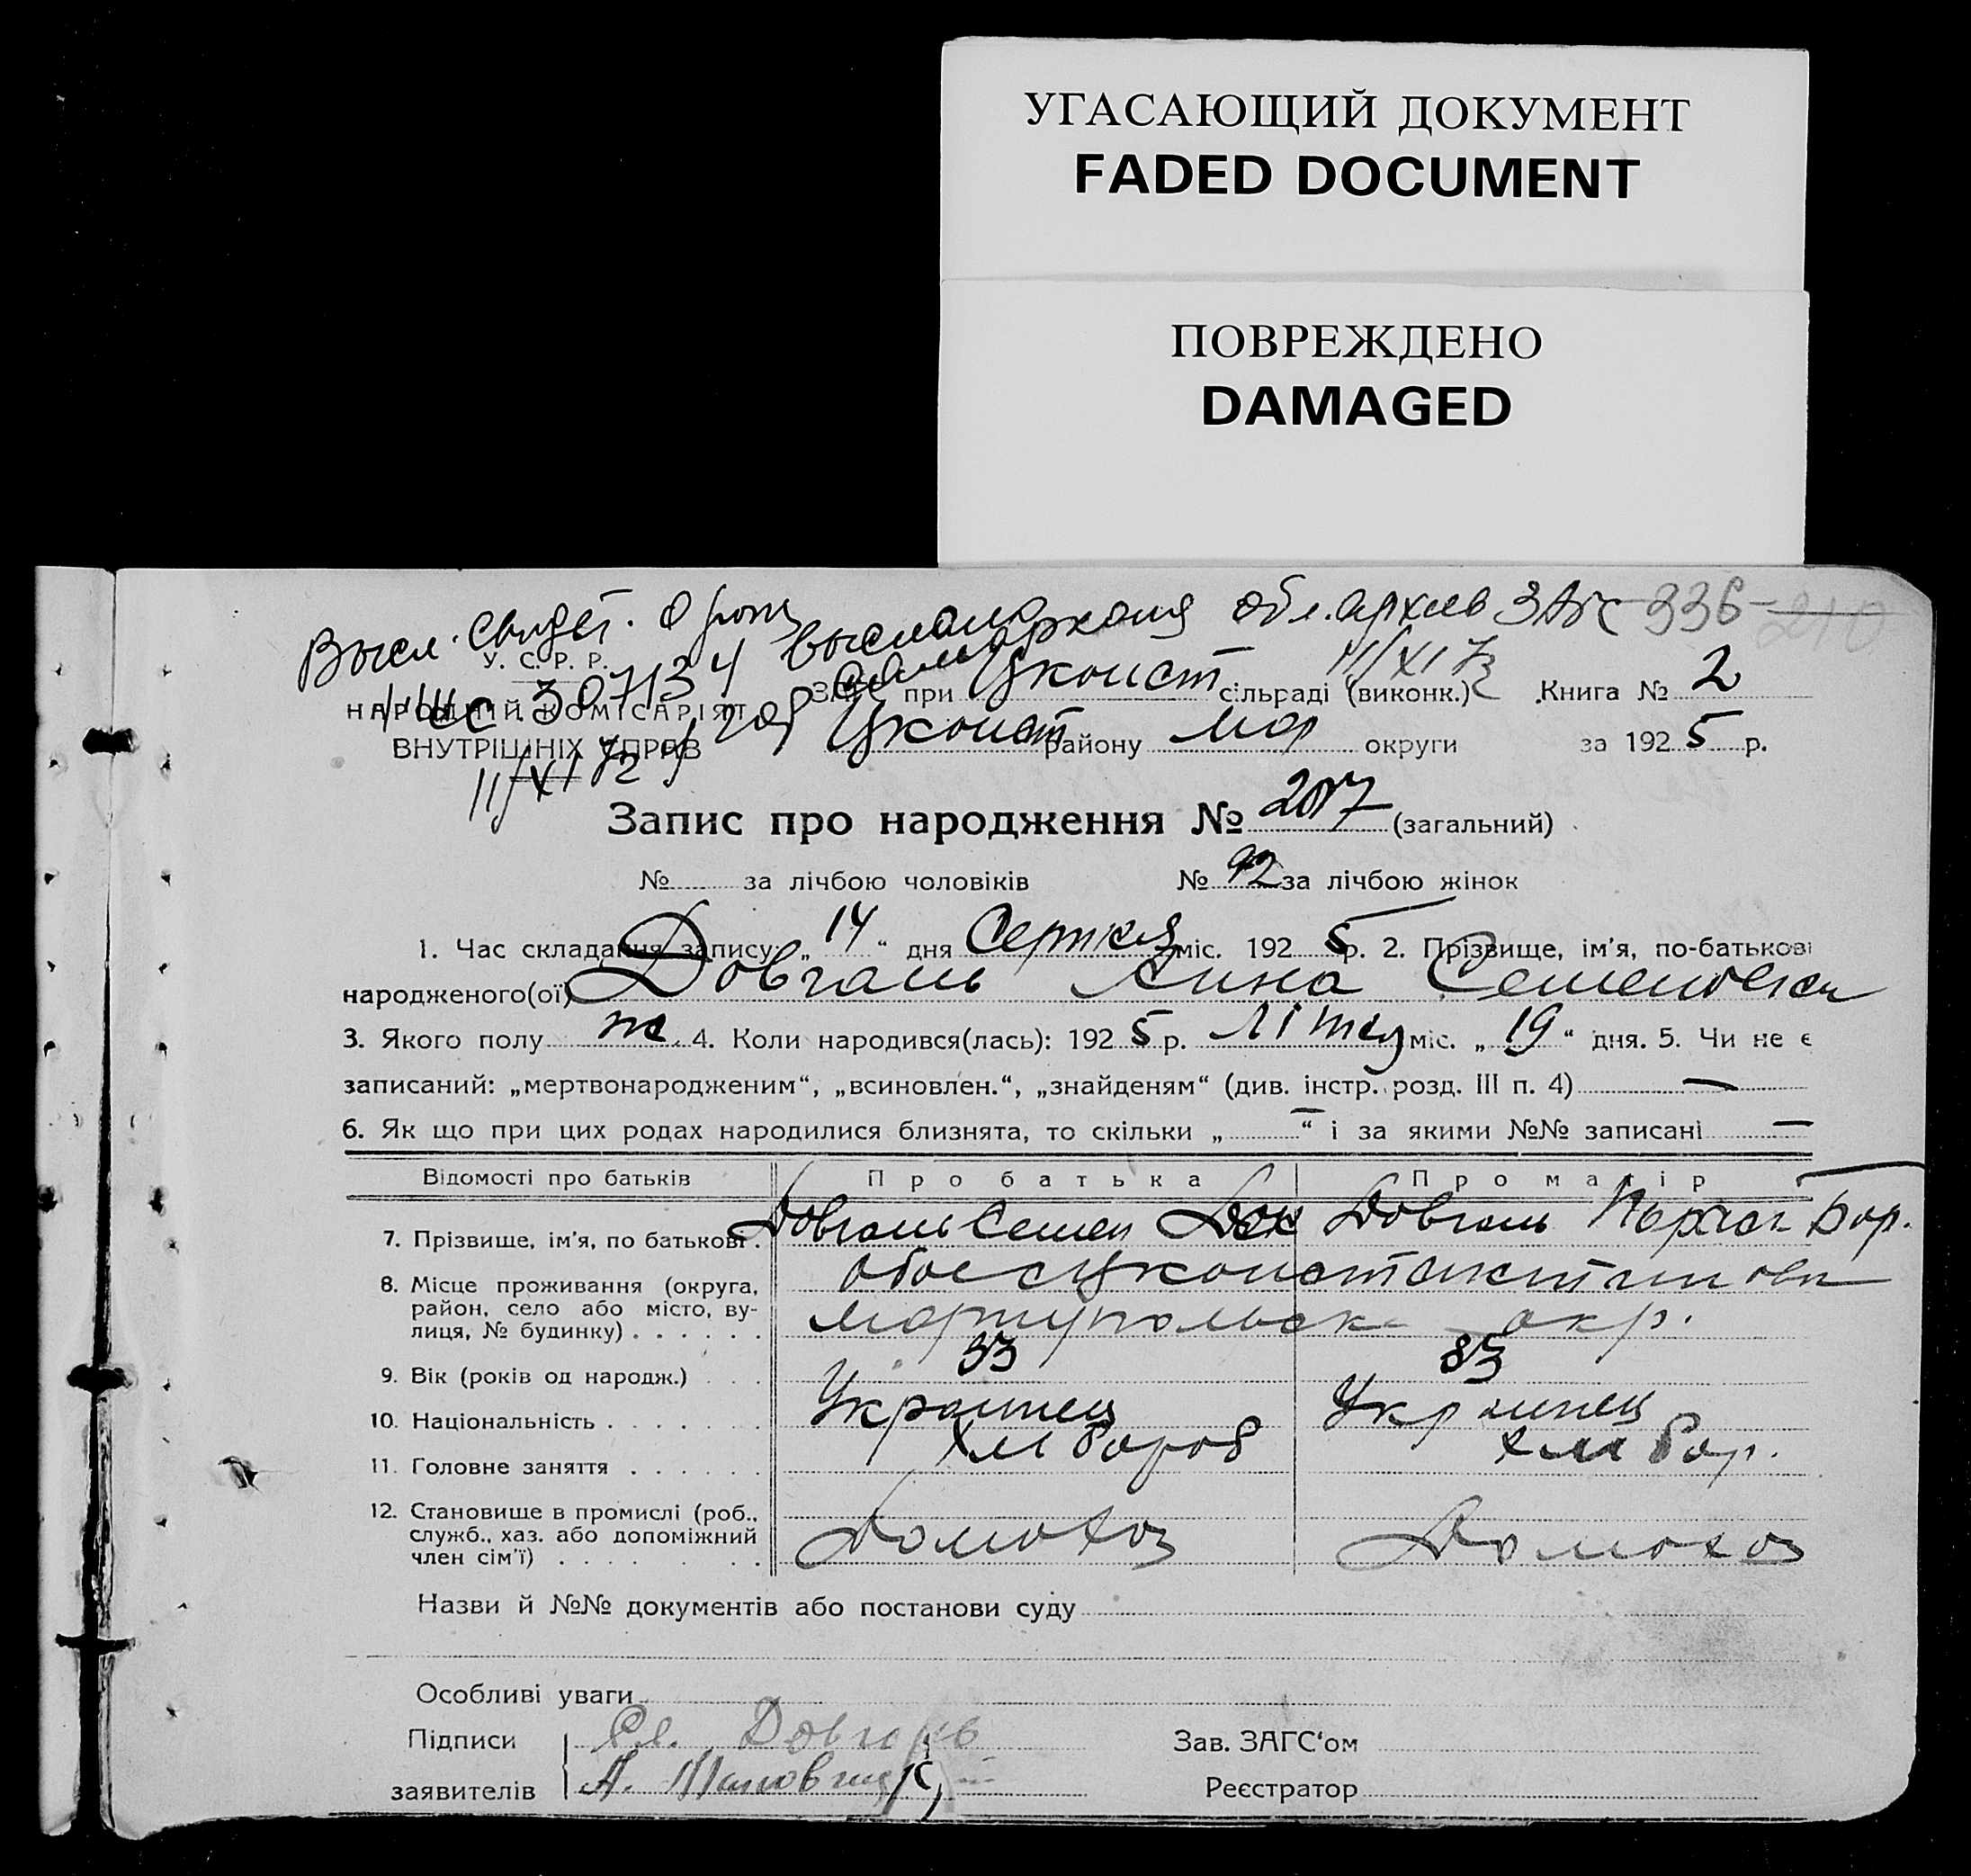 УГАСАЮЩИЙ ДОКУМЕНТ
FADED DOCUMENT
ПОВРЕЖДЕНО
DAMAGED
Высл. свидет. о рожд высылала обл. архив ЗАГС 336 210
У. С. Р. Р.
307134
при Цконст сільраді (виконк.) Книга № 2
НАРОДНІЙ КОМІСАРІЯТ
ВНУТРІШНІХ СПРАВ Цконст району Мар округи за 1925 р.
11/XI 72
Запис про народження № 207 (загальний)
№ за лічбою чоловіків № 92 за лічбою жінок
1. Час складання запису: „ 14 “ дня Серпня міс. 1925 р. 2. Прізвище, ім'я, по-батькові
народженого(ої) Довгаль Анна Семеновна
3. Якого полу ж. 4. Коли народився(лась): 1925 р. Літня міс. „ 19 “ дня. 5. Чи не є
записаний: „мертвонародженим“, „всиновлен.“, „знайденям“ (див. інстр. розд. III п. 4) —
6. Як що при цих родах народилися близнята, то скільки „ — “ і за якими №№ записані —
Відомості про батьків Про батька Про матір
7. Прізвище, ім'я, по батькові . Довгаль Семен Довгаль Бор.
8. Місце проживання (округа, район, село або місто, вулиця, № будинку) . . . . . . обое с Цконстантиновки
Мариупольск окр.
9. Вік (років од народж.) . . . 33 33
10. Національність . . . . . . . Украинец Украинец
11. Головне заняття . . . . . . хлібороб хлібор.
12. Становище в промислі (роб., служб., хаз. або допоміжний член сім'ї) . . . . . . . Домохоз Домохоз
Назви й №№ документів або постанови суду
Особливі уваги
Підписи Зав. ЗАГС'ом
заявителів А. Реєстратор